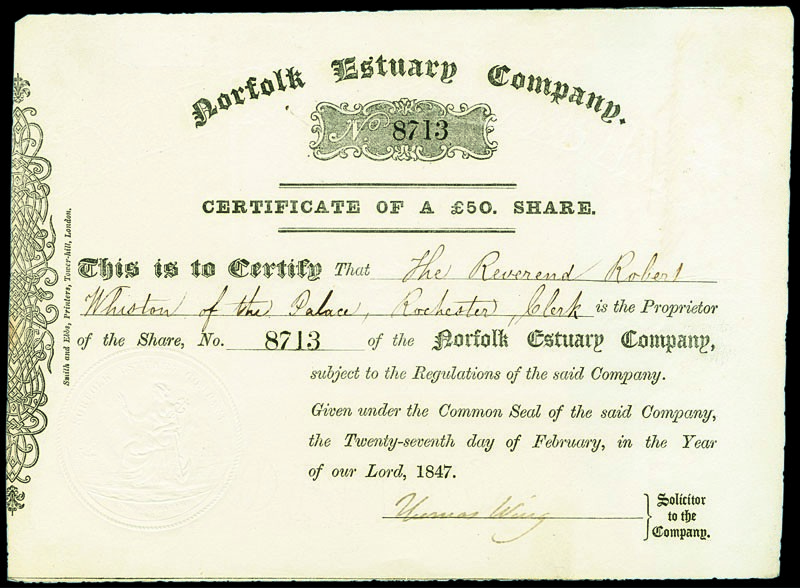 Norfolk Estuary Company.
No 8713
CERTIFICATE OF A £50. SHARE.
This is to Certify That The Reverend Robert
Whiston of the Palace, Rochester, Clerk is the Proprietor
of the Share, No. 8713 of the Norfolk Estuary Company,
subject to the Regulations of the said Company.
Given under the Common Seal of the said Company,
the Twenty-seventh day of February, in the Year
of our Lord, 1847.
Thomas Wing
Solicitor
to the
Company.
Smith and Ebbs, Printers, Tower-hill, London.